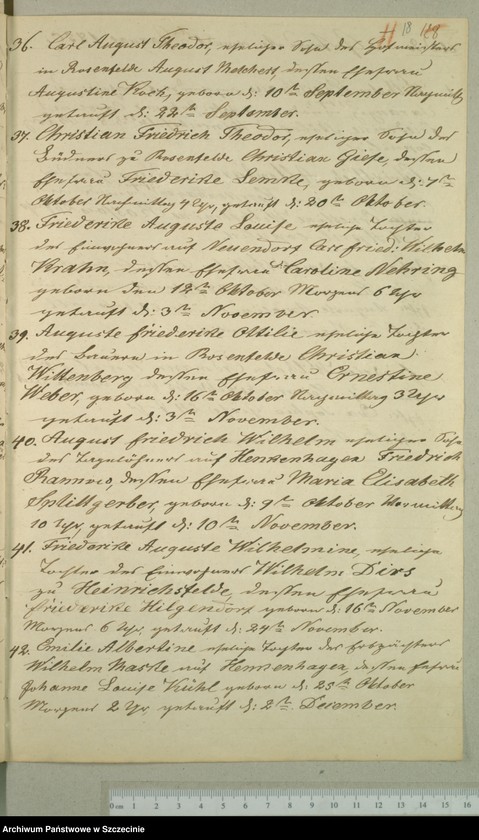 18
36. Carl August Theodor, ehelicher Sohn des Hofmeisters
in Rosenfelde August Melchert, dessen Ehefrau
Augustine Koch, geboren d: 10ten September Nachmittg
getauft d: 22ten September.
37. Christian Friedrich Theodor, ehelicher Sohn des
Büdners zu Rosenfelde Christian Giese, dessen
Ehefrau Friederike Lemke, geboren d: 7ten
Oktober Nachmittag 4 Uhr, getauft d: 20ten Oktober.
38. Friederike Auguste Louise eheliche Tochter
des Einwohners auf Neuendorf Carl Fried: Wilhelm
Krahn, dessen Ehefrau Caroline Nehring
geboren den 12ten Oktober Morgens 6 Uhr
getauft d: 3ten November.
39. Auguste Friederike Ottilie eheliche Tochter
des Bauern in Rosenfelde Christian
Wittenberg dessen Ehefrau Ernestine
Weber, geboren d: 16ten Oktober Nachmittag 3 Uhr
getauft d: 3ten November.
40. August Friedrich Wilhelm ehelicher Sohn
des Tagelöhners auf Henkenhagen Friedrich
dessen Ehefrau Maria Elisabeth
Splittgerber, geboren d: 9ten Oktober Vormittag
10 Uhr, getauft d: 10ten November.
41. Friederike Auguste Wilhelmine, eheliche
Tochter des Einwohners Wilhelm Dirs
zu Heinrichsfelde, dessen Ehefrau
Friederike Hilgendorf geboren d: 16ten November
Morgens 6 Uhr, getauft d: 24ten November.
42. Emilie Albertine eheliche Tochter des Erbpächters
Wilhelm Maske auf Henkenhagen, dessen Ehefrau
Johanne Louise Kühl geboren d: 25ten Oktober
Morgens 2 Uhr, getauft d: 2ten December.
0 cm 1 2 3 4 5 6 7 8 9 10 11 12 13 14 15 16
Archiwum Państwowe w Szczecinie